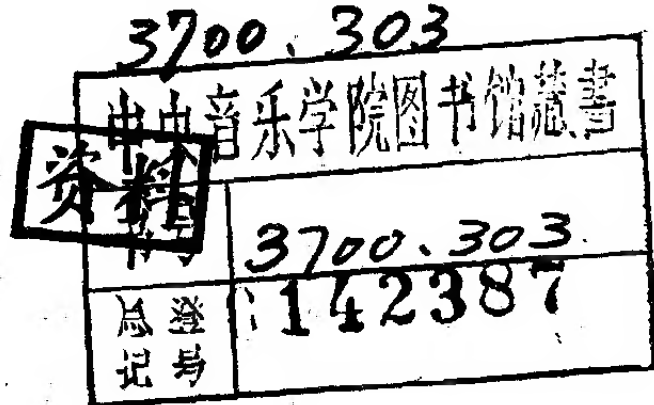 3700.303
中央音乐学院图书馆藏書
资料
书号 3700.303
总登记号 142387